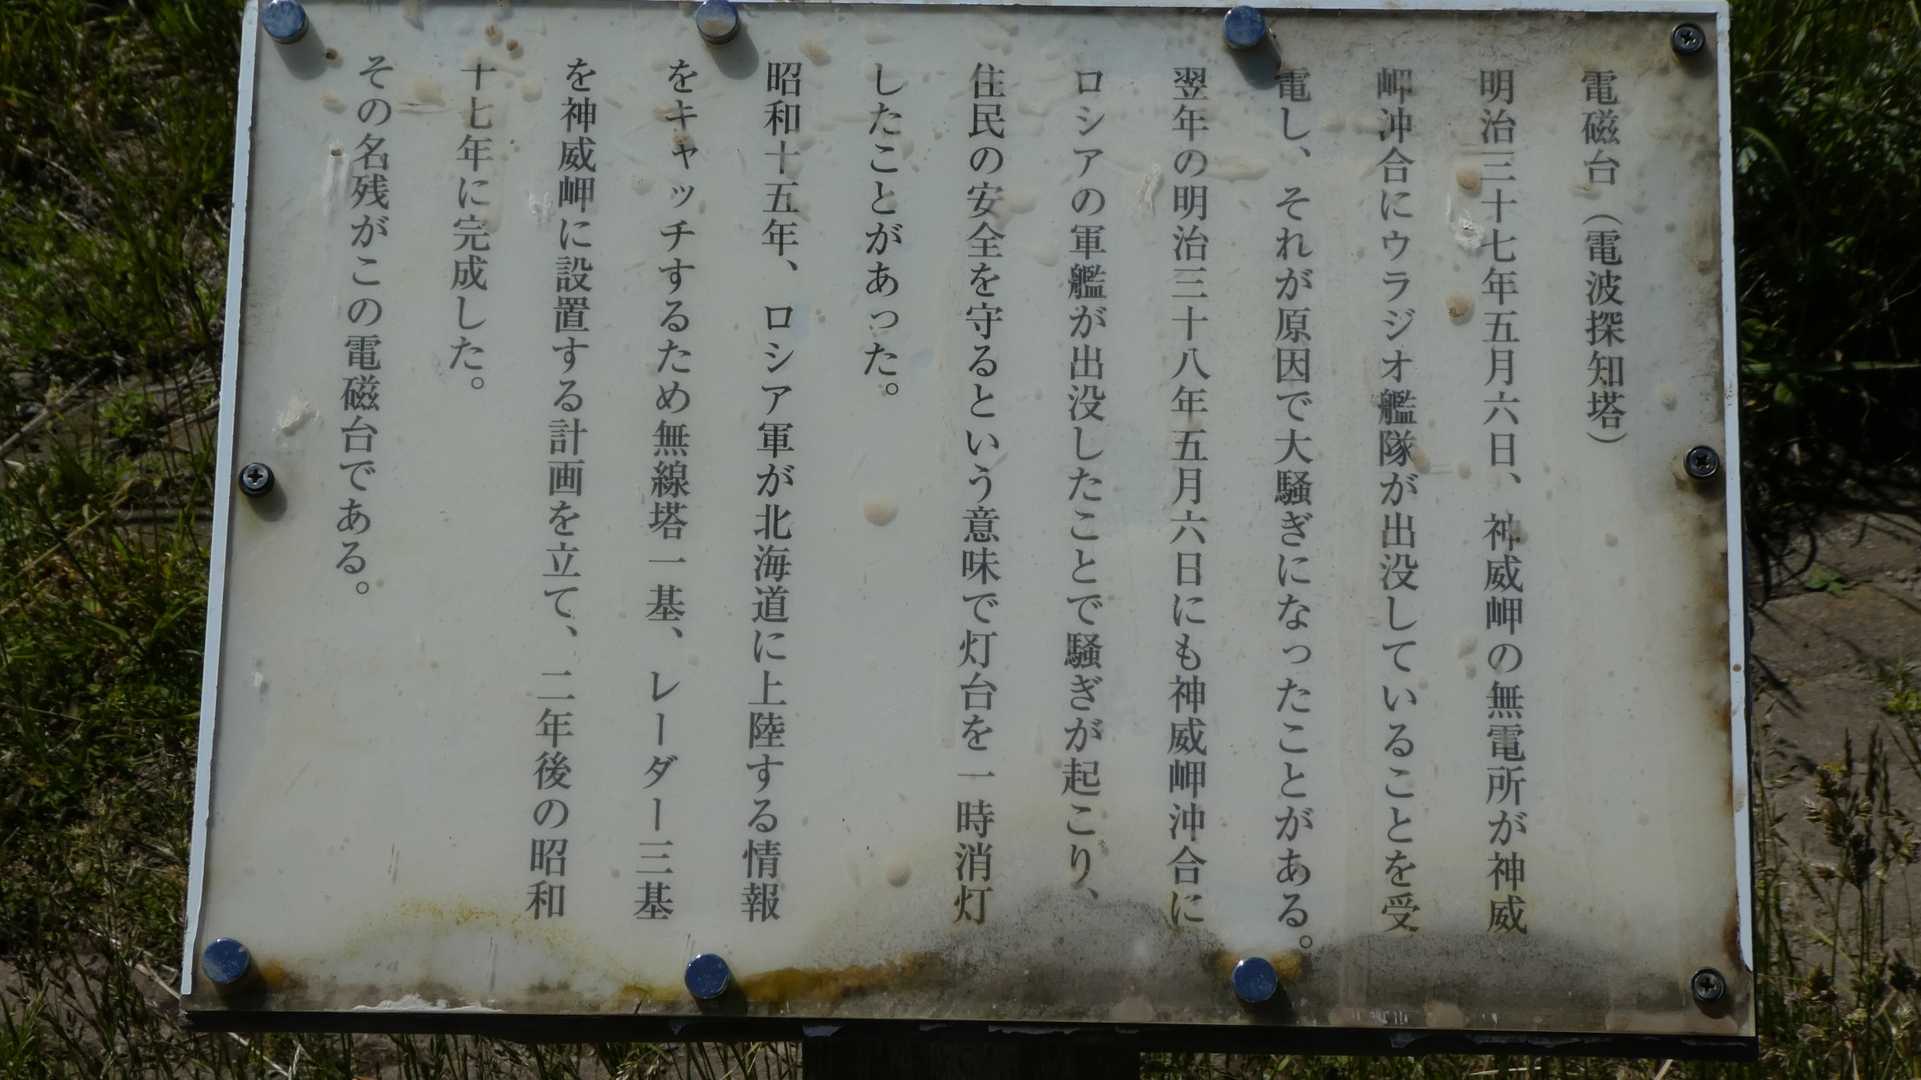 電磁台（電波探知塔）
明治三十七年五月六日、神威岬の無電所が神威
岬沖合にウラジオ艦隊が出没していることを受
電し、それが原因で大騒ぎになったことがある。
翌年の明治三十八年五月六日にも神威岬沖合に
ロシアの軍艦が出没したことで騒ぎが起こり、
住民の安全を守るという意味で灯台を一時消灯
したことがあった。
昭和十五年、ロシア軍が北海道に上陸する情報
をキャッチするため無線塔一基、レーダー三基
を神威岬に設置する計画を立て、二年後の昭和
十七年に完成した。
その名残がこの電磁台である。